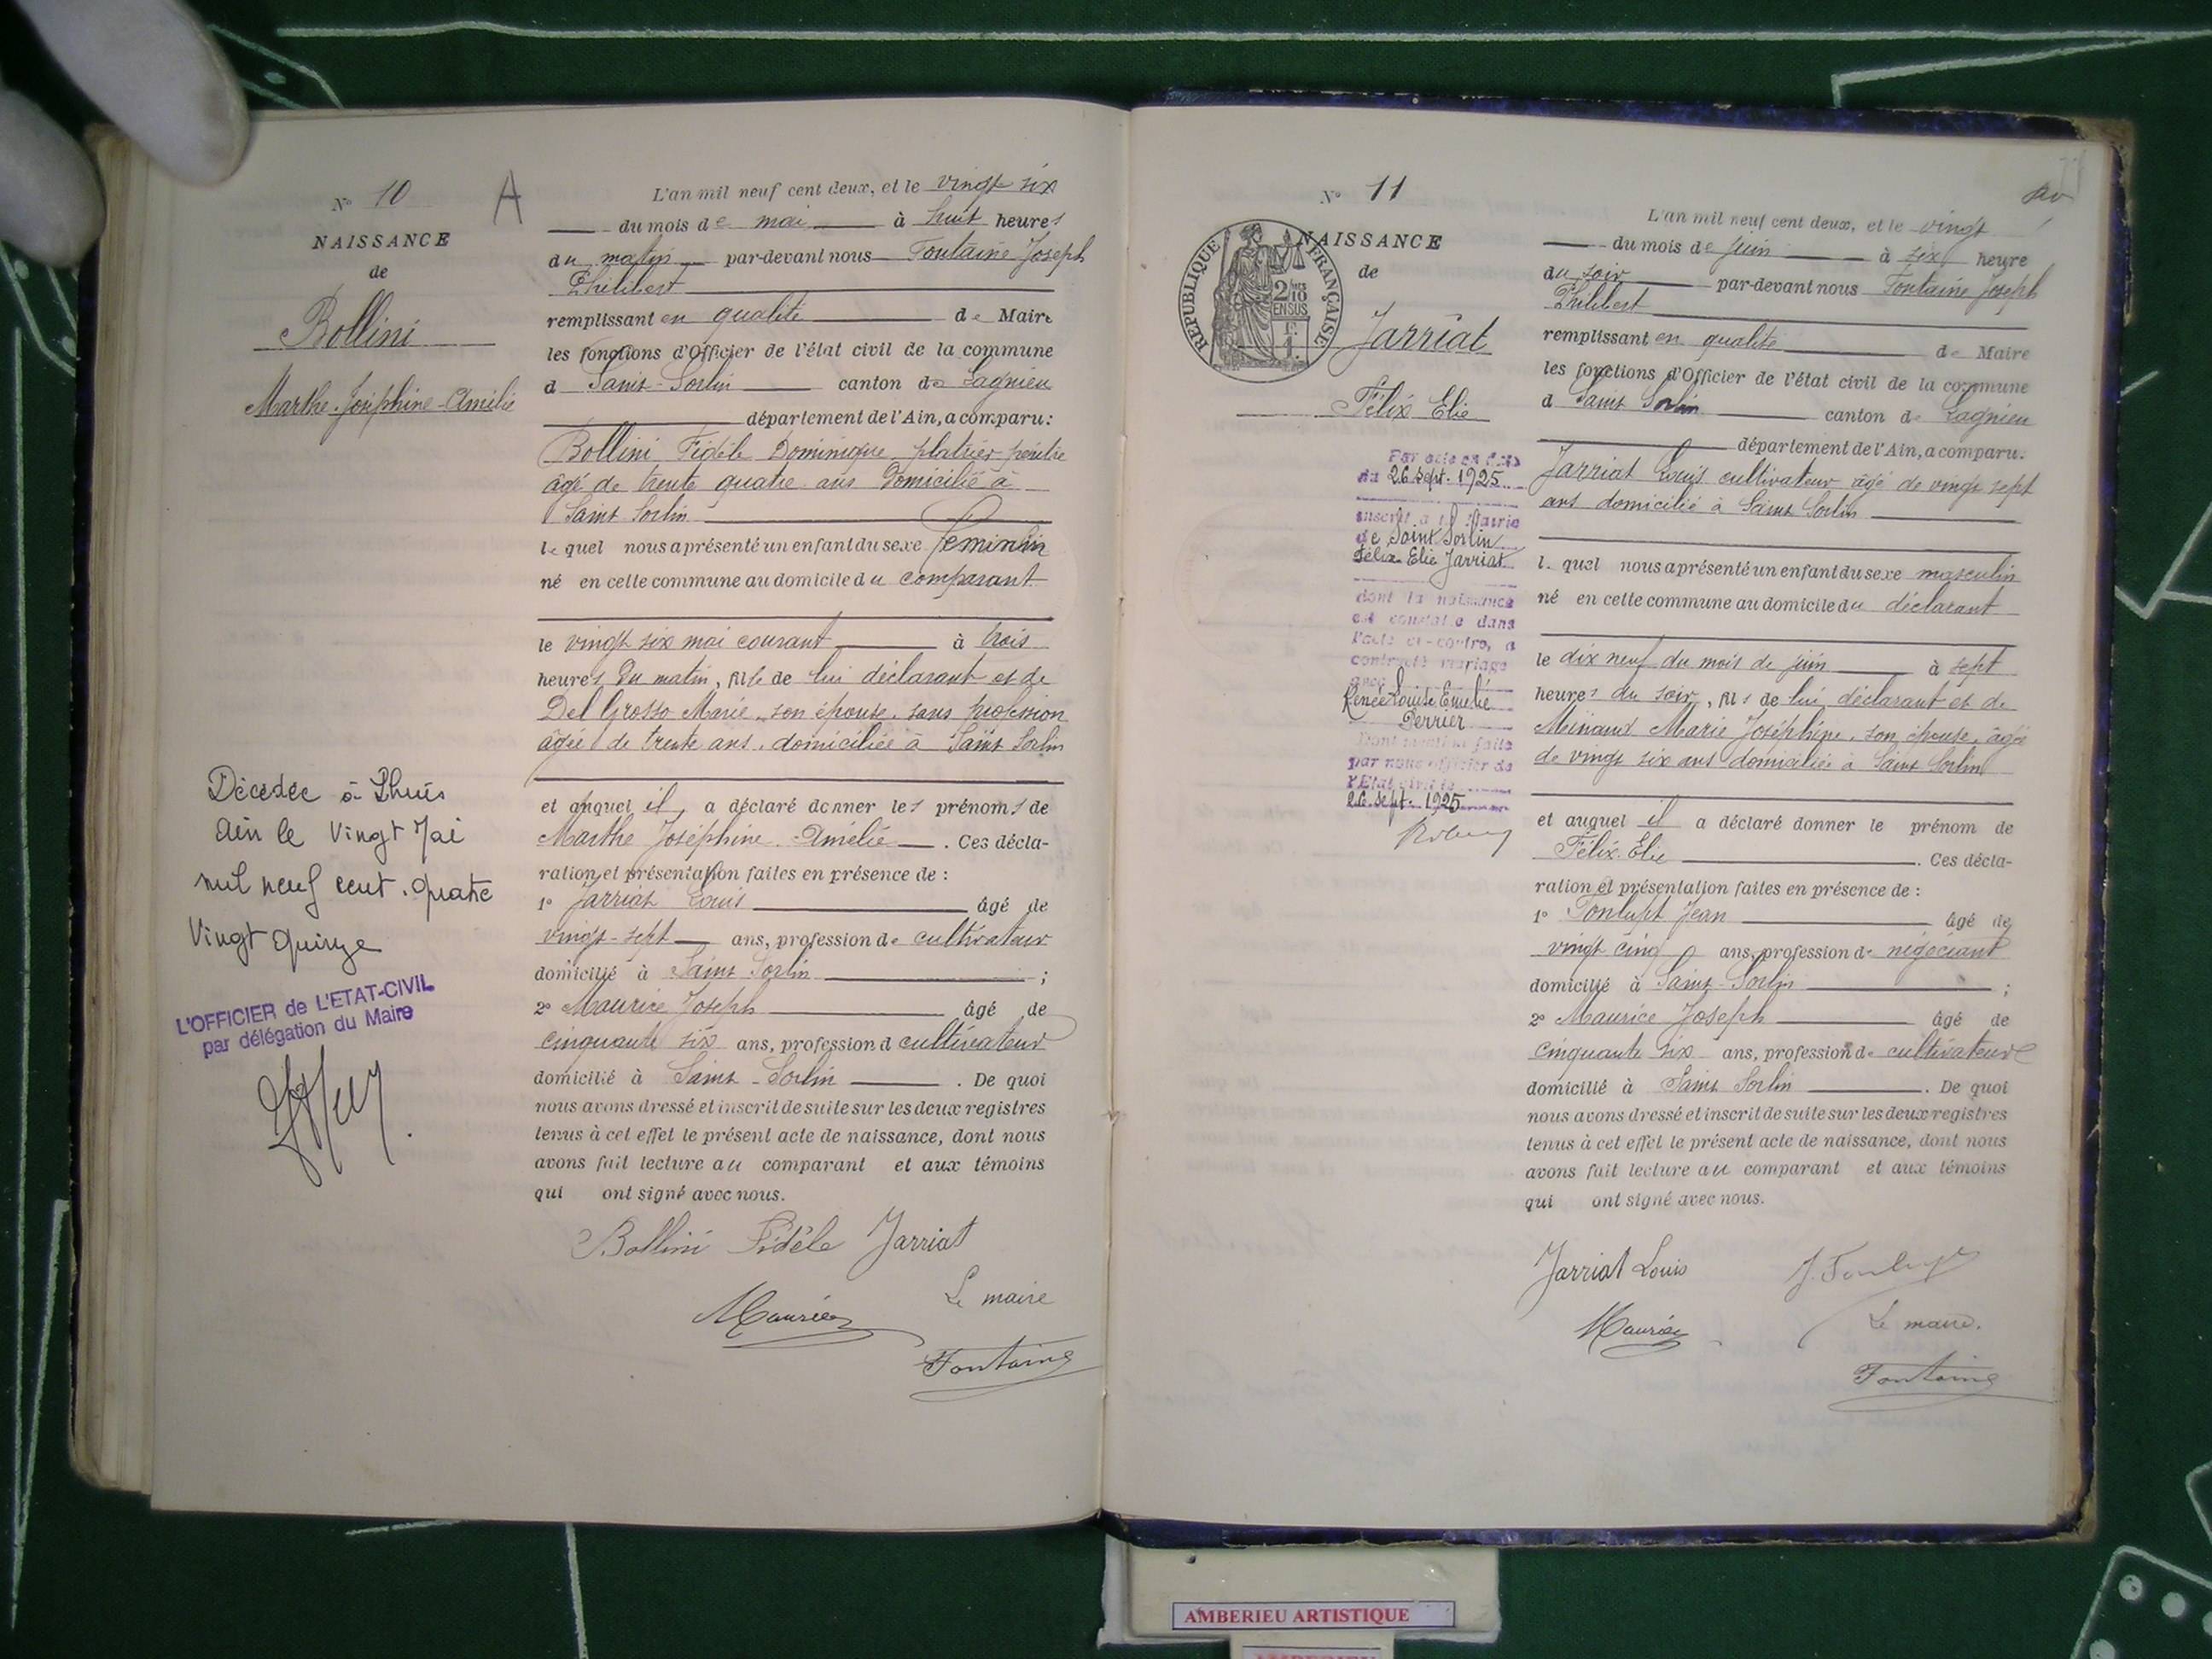 N° 10
A
NAISSANCE
de
Bollini
Marthe-Joséphine-Amélie
Décédée à Lhuis
Ain le Vingt Mai
mil neuf cent. quatre
Vingt Quinze
L'OFFICIER de L'ETAT-CIVIL
par délégation du Maire
L'an mil neuf cent deux, et le vingt six
du mois de mai à huit heures
du matin par-devant nous Fontaine Joseph
Philibert
remplissant en qualité de Maire
les fonctions d'Officier de l'état civil de la commune
d Saint-Sorlin canton de Lagnieu
département de l'Ain, a comparu:
Bollini Fidèle Dominique, plâtrier peintre
âgé de trente quatre ans domicilié à
Saint Sorlin
lequel nous a présenté un enfant du sexe féminin
né en cette commune au domicile du comparant
le vingt six mai courant à trois
heures du matin, fille de lui déclarant et de
Del Grosso Marie, son épouse, sans profession
âgée de trente ans, domiciliée à Saint Sorlin
et auquel il a déclaré donner les prénoms de
Marthe Joséphine Amélie. Ces décla-
ration et présentation faites en présence de :
1° Jarriat Louis âgé de
vingt-sept ans, profession de cultivateur
domicilié à Saint Sorlin ;
2° Maurice Joseph âgé de
cinquante six ans, profession d cultivateur
domicilié à Saint-Sorlin. De quoi
nous avons dressé et inscrit de suite sur les deux registres
tenus à cet effet le présent acte de naissance, dont nous
avons fait lecture au comparant et aux témoins
qui ont signé avec nous.
Bollini Fidèle Jarriat
Le maire
Maurice
Fontaine
N° 11
RÉPUBLIQUE FRANÇAISE
2/10 EN SUS
NAISSANCE
de
Jarriat
Félix Elie
Par acte en date
du 26 sept. 1925
inscrit à la Mairie
de Saint Sorlin
Félix Elie Jarriat
dont la naissance
est constatée dans
l'acte ci-contre, a
contracté mariage
avec
Renée Louise Emélie
Perrier
Dont mention faite
par nous officier de
l'Etat civil le
26 sept. 1925
L'an mil neuf cent deux, et le vingt
du mois de juin à six heure
du soir par-devant nous Fontaine Joseph
Philibert
remplissant en qualité de Maire
les fonctions d'Officier de l'état civil de la commune
d Saint Sorlin canton de Lagnieu
département de l'Ain, a comparu:
Jarriat Louis cultivateur âgé de vingt sept
ans domicilié à Saint Sorlin
lequel nous a présenté un enfant du sexe masculin
né en cette commune au domicile du déclarant
le dix neuf du mois de juin à sept
heures du soir, fils de lui déclarant et de
Marie Joséphine, son épouse, âgée
de vingt six ans domiciliée à Saint Sorlin
et auquel il a déclaré donner le prénom de
Félix Elie. Ces décla-
ration et présentation faites en présence de :
1° Tonlupt Jean âgé de
vingt cinq ans, profession de négociant
domicilié à Saint-Sorlin ;
2° Maurice Joseph âgé de
cinquante six ans, profession de cultivateur
domicilié à Saint Sorlin. De quoi
nous avons dressé et inscrit de suite sur les deux registres
tenus à cet effet le présent acte de naissance, dont nous
avons fait lecture au comparant et aux témoins
qui ont signé avec nous.
Jarriat Louis J. Tonlupt
Maurice Le maire.
Fontaine
AMBERIEU ARTISTIQUE
AMBERIEU